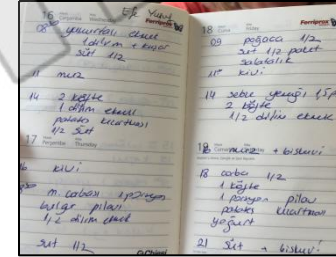 16
Çarşamba Wednesday
Efe
08 yumurtalı ekmek
1 dilim + kaşar
Süt 1/2
11 muz
14 2 köfte
1 dilim ekmek
patates kızartması
1/2 Süt
17
Perşembe Thursday
kivi
m. çorbası 1 porsiyon
bulgur pilavı
1/2 dilim ekmek
Süt 1/2
18
Ferriprox
09 poğaca 1/2
Süt 1/2 paket
salatalık
11 kivi
14 sebze yemeği 1,5 p
2 köfte
1/2 dilim ekmek
muz + bisküvi
18 çorba 1/2
1 köfte
1 porsiyon pilav
patates kızartması
yoğurt
21 Süt + bisküvi